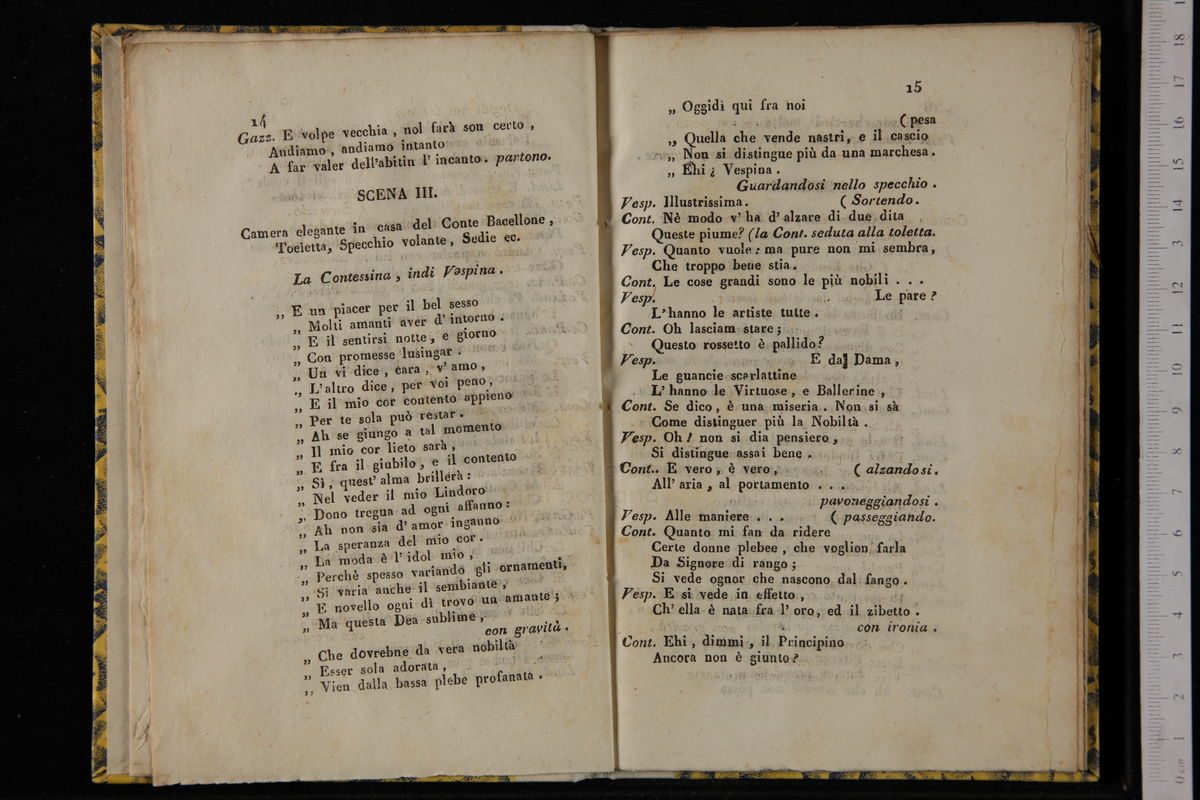 14
Gazz. E volpe vecchia , nol farà son certo ,
Andiamo , andiamo intanto
A far valer dell'abitin l' incanto . partono.
SCENA III.
Camera elegante in casa del Conte Bacellone ,
Toeletta, Specchio volante, Sedie ec.
La Contessina , indi Vespina .
,, E un piacer per il bel sesso
,, Molti amanti aver d' intorno .
,, E il sentirsi notte , e giorno
,, Con promesse lusingar .
,, Un vi dice , cara , v' amo ,
,, L' altro dice , per voi peno ,
,, E il mio cor contento appieno
,, Per te sola può restar .
,, Ah se giungo a tal momento
,, Il mio cor lieto sarà ,
,, E fra il giubilo , e il contento
,, Sì , quest' alma brillerà :
,, Nel veder il mio Lindoro
,, Dono tregua ad ogni affanno :
,, Ah non sia d' amor inganno
,, La speranza del mio cor .
,, La moda è l' idol mio ,
,, Perchè spesso variando gli ornamenti,
,, Si varia anche il sembiante ,
,, E novello ogni dì trovo un amante ;
,, Ma questa Dea sublime ,
con gravità .
,, Che dovrebne da vera nobiltà
,, Esser sola adorata ,
,, Vien dalla bassa plebe profanata .
15
,, Oggidì qui fra noi
( pesa
,, Quella che vende nastri, e il cascio
,, Non si distingue più da una marchesa .
,, Ehi ¿ Vespina .
Guardandosi nello specchio .
Vesp. Illustrissima . ( Sortendo .
Cont. Nè modo v' ha d' alzare di due dita
Queste piume? (la Cont. seduta alla toletta.
Vesp. Quanto vuole : ma pure non mi sembra,
Che troppo bene stia .
Cont. Le cose grandi sono le più nobili . . .
Vesp. Le pare ?
L' hanno le artiste tutte .
Cont. Oh lasciam stare ;
Questo rossetto è pallido ?
Vesp. E da] Dama ,
Le guancie scarlattine
L' hanno le Virtuose , e Ballerine ,
Cont. Se dico , è una miseria . Non si sà
Come distinguer più la Nobiltà .
Vesp. Oh ! non si dia pensiero ,
Si distingue assai bene .
Cont.. E vero , è vero , ( alzandosi .
All' aria , al portamento . . .
pavoneggiandosi .
Vesp. Alle maniere . . . ( passeggiando.
Cont. Quanto mi fan da ridere
Certe donne plebee , che voglion farla
Da Signore di rango ;
Si vede ognor che nascono dal fango .
Vesp. E si vede in effetto ,
Ch' ella è nata fra l' oro , ed il zibetto .
con ironia .
Cont. Ehi , dimmi , il Principino
Ancora non è giunto ?
0 cm 1 2 3 4 5 6 7 8 9 10 11 12 13 14 15 16 17 18